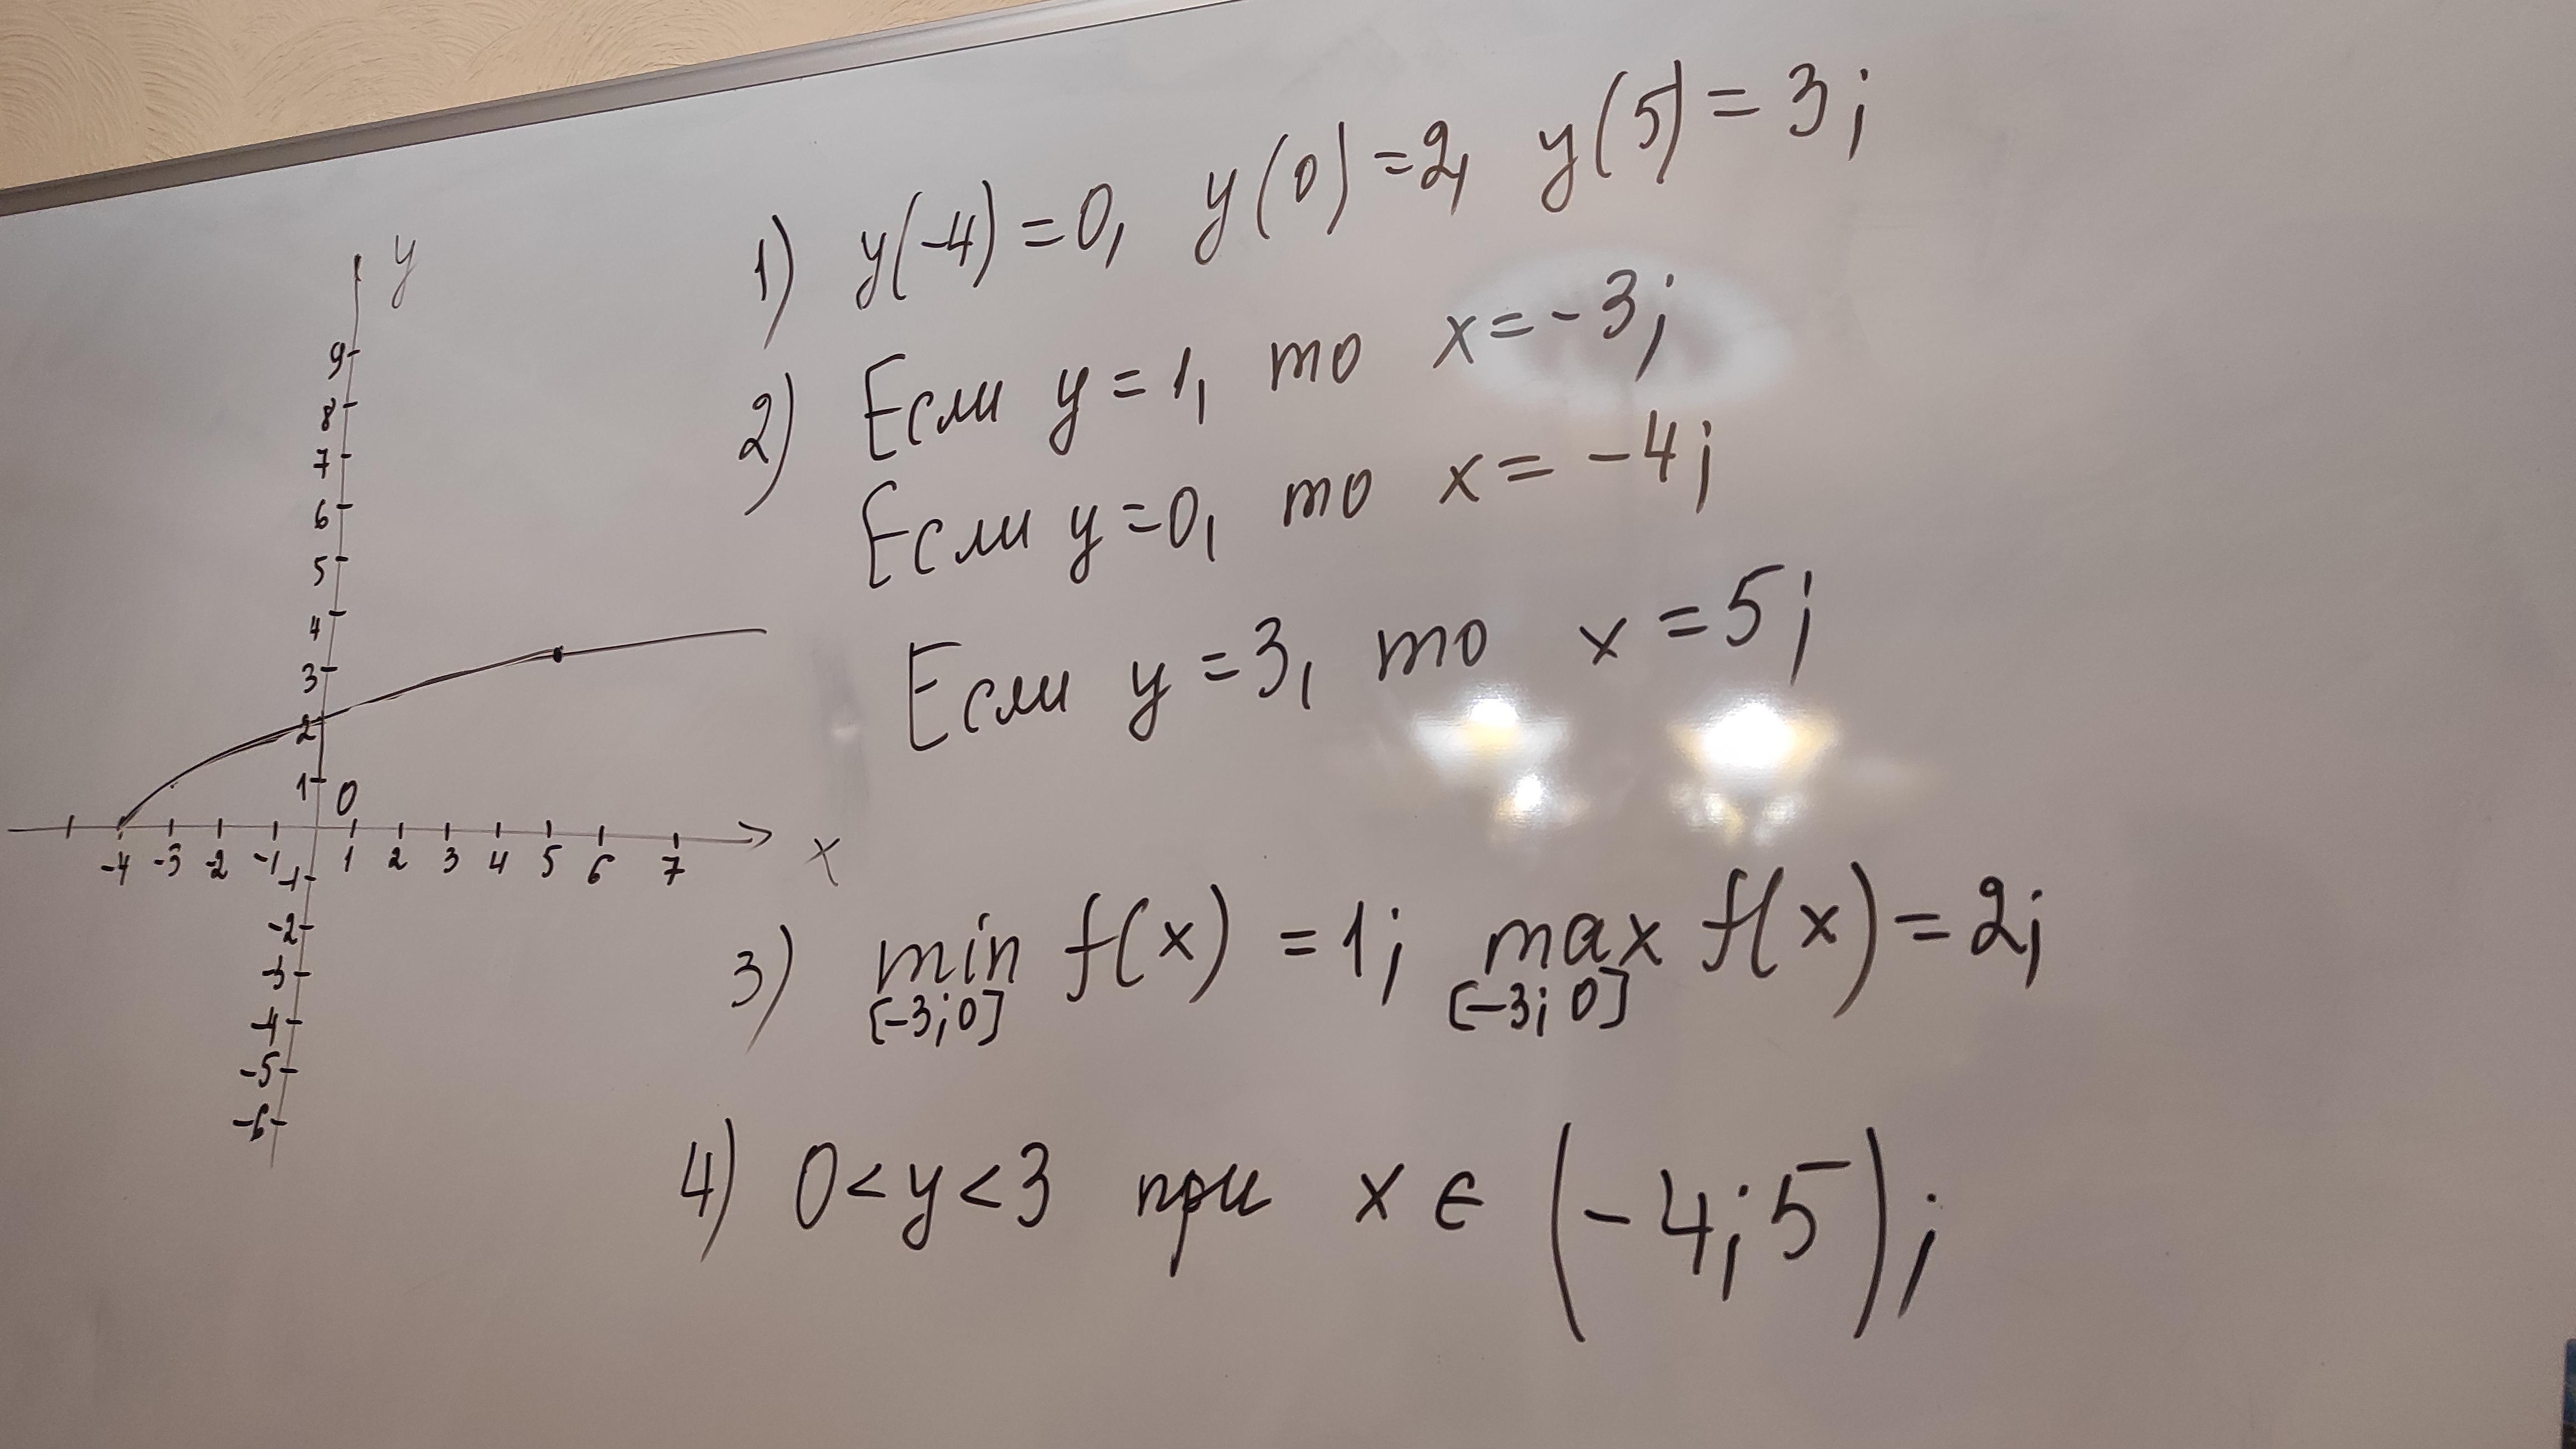 y
9
8
7
6
5
4
3
2
1
0
-4 -3 -2 -1 1 2 3 4 5 6 7
x
-1
-2
-3
-4
-5
-6
1) y(-4) = 0, y(0) = 2, y(5) = 3;
2) Если y = 1, то x = -3;
Если y = 0, то x = -4;
Если y = 3, то x = 5;
3) min f(x) = 1; max f(x) = 2;
[-3; 0] [-3; 0]
4) 0 < y < 3 при x ∈ (-4; 5);